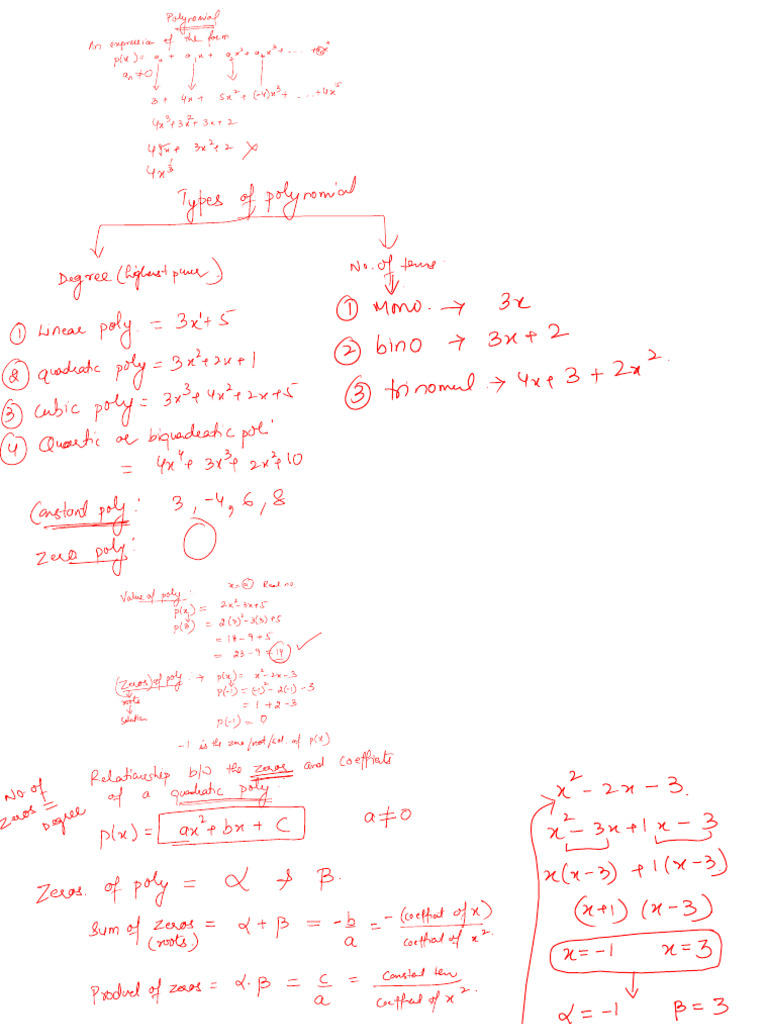 Polynomial
An expression of the form
p(x) = a₀ + a₁x + a₂x² + a₃x³ + ... +
aₙ ≠ 0
3 + 4x + 5x² + (-4)x³ + ... + 4x⁵
4x³ + 3x² + 3x + 2
4√x + 3x² + 2 ✗
4x^(1/3)
Types of polynomial
Degree (highest power)
① Linear poly. = 3x¹ + 5
② quadratic poly = 3x² + 2x + 1
③ Cubic poly = 3x³ + 4x² + 2x + 5
④ Quartic or biquadratic pol:
= 4x⁴ + 3x³ + 2x² + 10
Constant poly: 3, -4, 6, 8
Zero poly: 0
No. of terms
① Mono. → 3x
② bino → 3x + 2
③ trinomial → 4x + 3 + 2x².
x = a Real no.
Value of poly:
p(x) = 2x² - 3x + 5
p(3) = 2(3)² - 3(3) + 5
= 18 - 9 + 5
= 23 - 9 = 14 ✓
(Zeros) of poly → p(x) = x² - 2x - 3
roots
solution
p(-1) = (-1)² - 2(-1) - 3
= 1 + 2 - 3
p(-1) = 0
-1 is the zero/root/sol. of p(x)
No. of zeros = Degree
Relationship b/w the zeros and coeffiats
of a quadratic poly:
p(x) = ax² + bx + c a ≠ 0
Zeros. of poly = α & β.
Sum of zeros (roots) = α + β = -b/a = -(coeffiat of x)/coeffiat of x².
Product of zeros = α·β = c/a = constant term/coeffiat of x².
x² - 2x - 3.
x² - 3x + 1x - 3
x(x-3) + 1(x-3)
(x+1) (x-3)
x = -1 x = 3
α = -1 β = 3